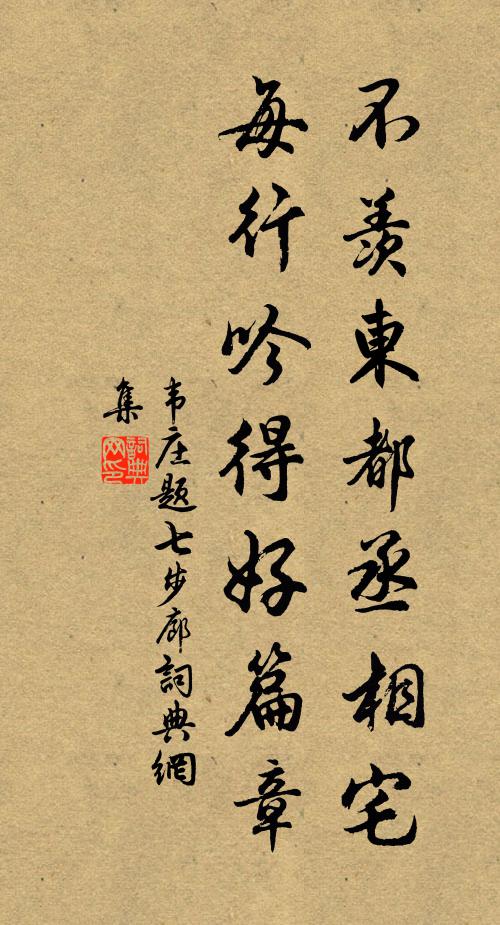 不羨東都丞相宅
每行吟得好篇章
韦庄题七步廊詞典網
集
詞典
网印